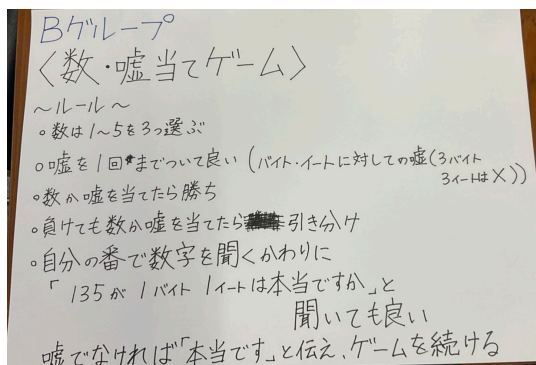 Bグループ
〈数・嘘当てゲーム〉
～ルール～
○数は1~5を3つ選ぶ
○嘘を1回までついて良い(バイト・イートに対しての嘘(3バイト
3イートは×))
○数か嘘を当てたら勝ち
○負けても数か嘘を当てたら引き分け
○自分の番で数字を聞くかわりに
「135が1バイト1イートは本当ですか」と
聞いても良い
嘘でなければ「本当です」と伝え、ゲームを続ける